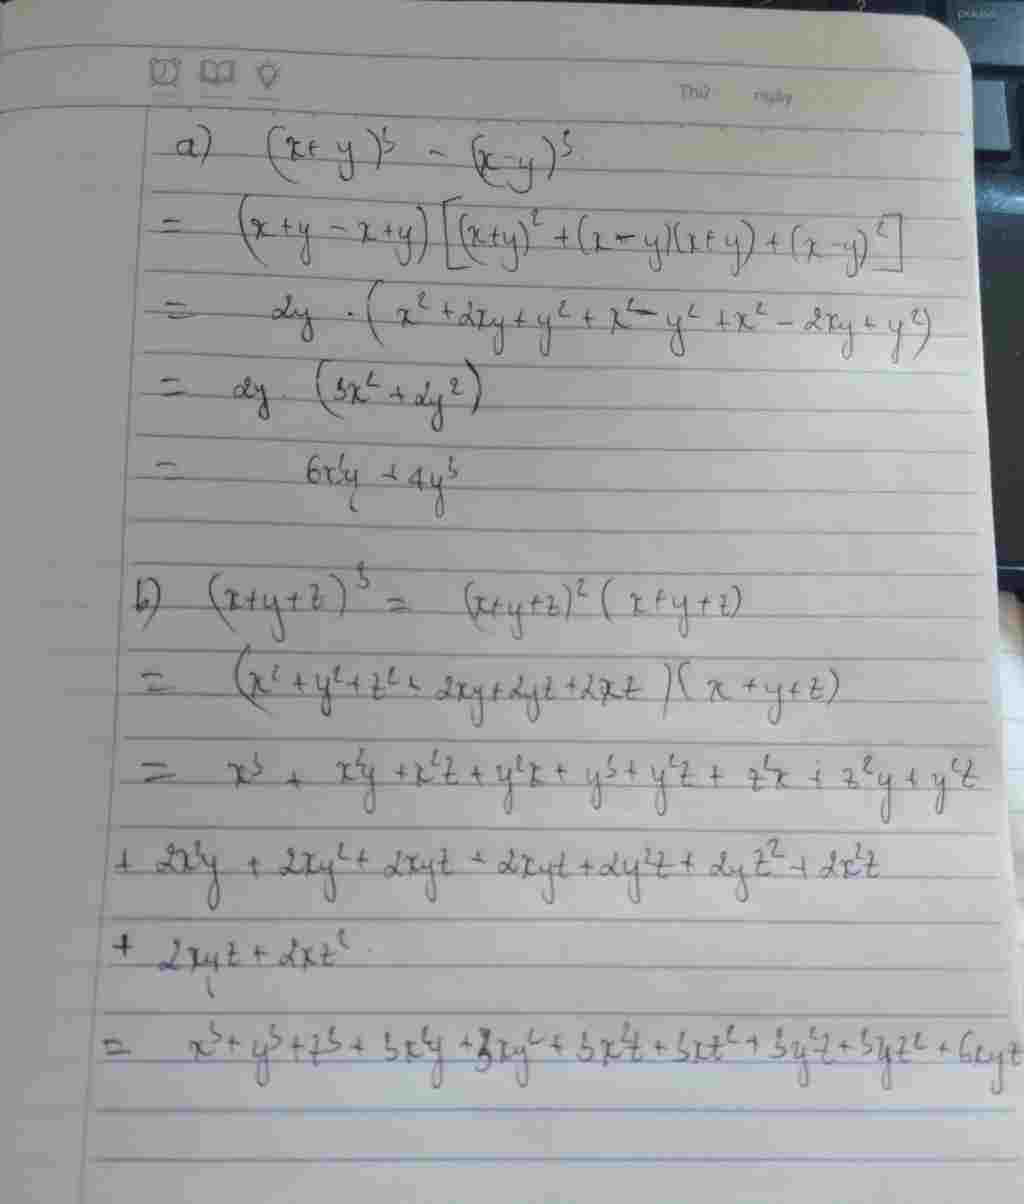 Thứ ngày
a) (x+y)³ - (x-y)³
= (x+y-x+y)[(x+y)² + (x-y)(x+y) + (x-y)²]
= 2y . (x² + 2xy + y² + x² - y² + x² - 2xy + y²)
= 2y. (3x² + 2y²)
= 6x²y + 4y³
b) (x+y+z)³ = (x+y+z)² (x+y+z)
= (x² + y² + z² + 2xy + 2yz + 2xz)(x+y+z)
= x³ + x²y + x²z + y²x + y³ + y²z + z²x + z²y + y²z
+ 2x²y + 2xy² + 2xyz + 2xyz + 2y²z + 2yz² + 2x²z
+ 2xyz + 2xz².
= x³ + y³ + z³ + 3x²y + 3xy² + 3x²z + 3xz² + 3y²z + 3yz² + 6xyz